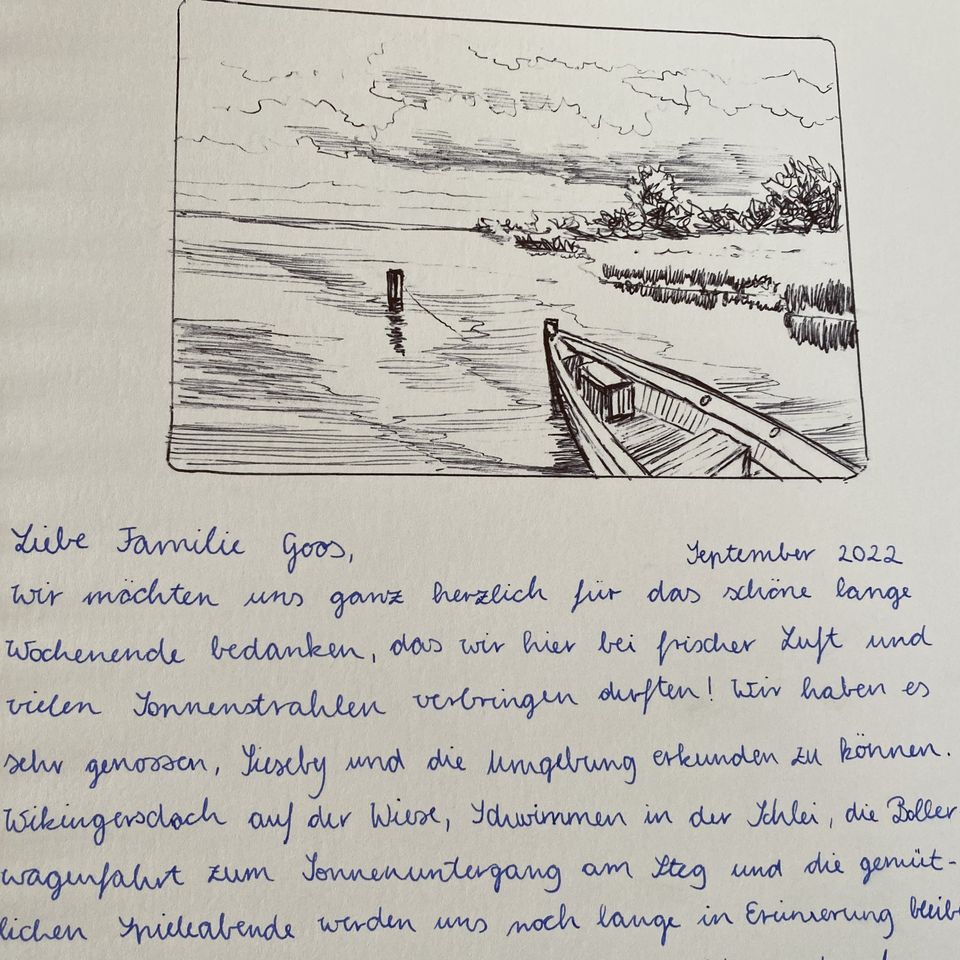 Liebe Familie Goos,
September 2022
Wir möchten uns ganz herzlich für das schöne lange
Wochenende bedanken, das wir hier bei frischer Luft und
vielen Sonnenstrahlen verbringen durften! Wir haben es
sehr genossen, Sieseby und die Umgebung erkunden zu können.
Wikingerschach auf der Wiese, Schwimmen in der Schlei, die Boller
wagenfahrt zum Sonnenuntergang am Steg und die gemüt-
lichen Spieleabende werden uns noch lange in Erinnerung bleibe